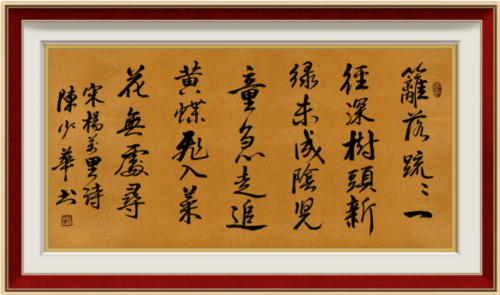 籬落疏ミ一
徑深樹頭新
緑未成陰児
童急走追
黄蝶飛入菜
花無處尋
宋楊萬里詩
陳少華书